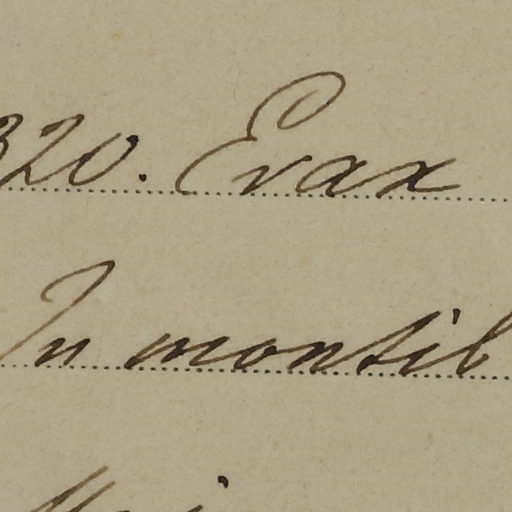 320. Evax
In montib